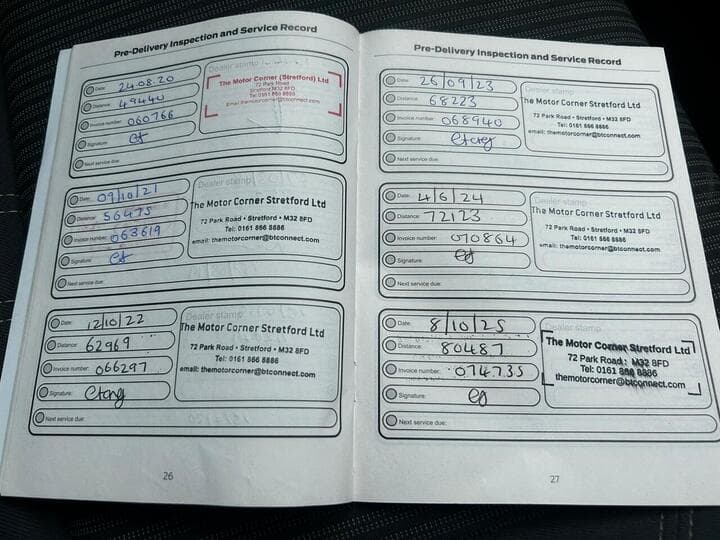 Pre-Delivery Inspection and Service Record
Date: 24.08.20
Distance: 49440
Invoice number: 060766
Signature:
Next service due:
Dealer stamp
The Motor Corner (Stretford) Ltd
72 Park Road
Stretford M32 8FD
Tel: 0161 866 8886
Email: themotorcorner@btconnect.com
Date: 09/10/21
Distance: 56475
Invoice number: 063619
Signature:
Next service due:
Dealer stamp
The Motor Corner Stretford Ltd
72 Park Road • Stretford • M32 8FD
Tel: 0161 866 8886
email: themotorcorner@btconnect.com
Date: 12/10/22
Distance: 62969
Invoice number: 066297
Signature:
Next service due:
Dealer stamp
The Motor Corner Stretford Ltd
72 Park Road • Stretford • M32 8FD
Tel: 0161 866 8886
email: themotorcorner@btconnect.com
26
Pre-Delivery Inspection and Service Record
Date: 26/09/23
Distance: 68223
Invoice number: 068940
Signature:
Next service due:
Dealer stamp
The Motor Corner Stretford Ltd
72 Park Road • Stretford • M32 8FD
Tel: 0161 866 8886
email: themotorcorner@btconnect.com
Date: 4/6/24
Distance: 72123
Invoice number: 070864
Signature:
Next service due:
Dealer stamp
The Motor Corner Stretford Ltd
72 Park Road • Stretford • M32 8FD
Tel: 0161 866 8886
email: themotorcorner@btconnect.com
Date: 8/10/25
Distance: 80487
Invoice number: 074735
Signature:
Next service due:
Dealer stamp
The Motor Corner Stretford Ltd
72 Park Road • M32 8FD
Tel: 0161 866 8886
themotorcorner@btconnect.com
27